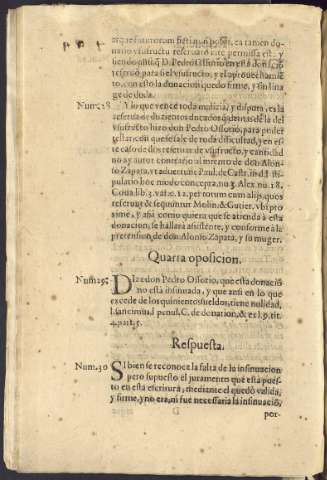 uarque suorum fieri non posse, ea tamen do-
natio vsufructu reseruato rite permissa, y
siendo assi, q̃ D. Pedro Ossorio en esta donació
reseruò para si el vsufructo, y el aprouechamié
to, con esto la donacion quedo firme, y sin lina
ge de duda.
Num. 28 Y lo que vence toda malicia, y disputa, es la
reserua de duzientos ducados, q̃ demas de la del
vsufructo hizo don Pedro Ossorio, para poder
testar: con que se sale de toda dificultad, y en es
te caso de dos reseruas de vsufructo, y cantidad
no ay autor contrario al intento de don Alon-
so Zapata, vt aduertunt Paul. de Castr. in d. l. sti-
pulatio hoc modo concepta, nu. 3. Alex. nu. 18.
Coua. lib. 3. var. c. 12. per totum cum alijs, quos
referunt, & sequuntur Molin. & Gutier. vbi pro-
xime, y assi como quiera que se atienda a esta
donacion, se hallarà asistente, y conforme à la
pretension de don Alonso Zapata, y su muger.
Quarta oposicion.
Num. 29. Dize don Pedro Ossorio, que esta donació
no està insinuada, y que ansi en lo que
excede de los quinientos sueldos, tiene nulidad,
l. sancimus, l. penul. C. de donation, & ex l. 9. tit.
4. part. 5.
Respuesta.
Num. 30 Si bien se reconoce la falta de la insinuacion
pero supuesto el juramento que està pues-
to en esta escritura, mediante el quedò valida,
y firme, y no era, ni fue necessaria la insinuació,
D por-